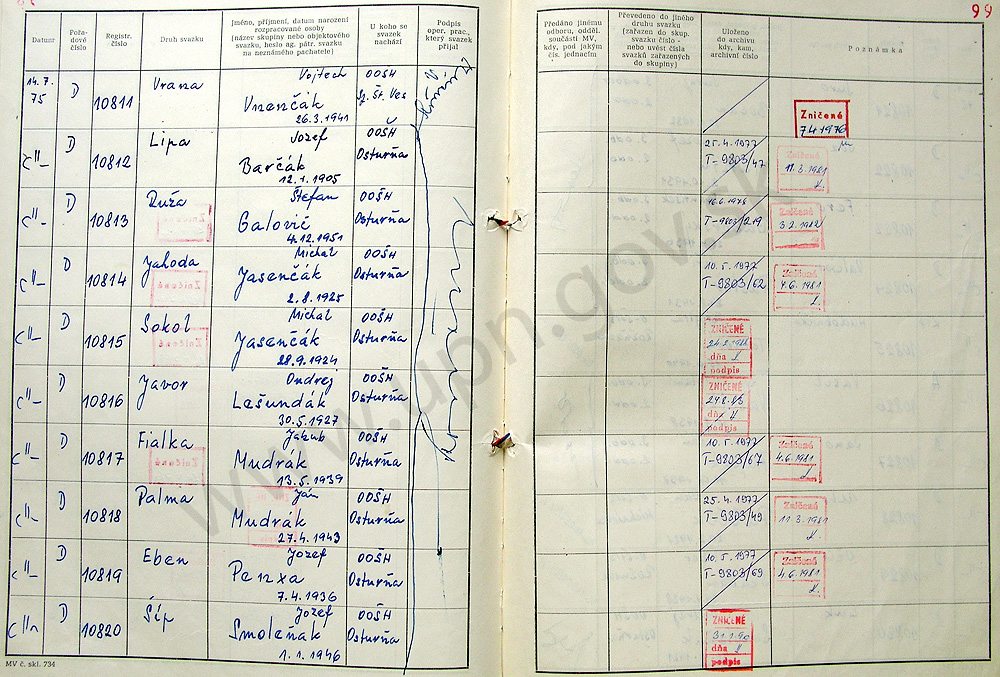 99
Datum
Pořa-
dové
číslo
Registr.
číslo
Druh svazku
Jméno, příjmení, datum narození
rozpracované osoby
(název skupiny nebo objektového
svazku, heslo ag. pátr. svazku
na neznámého pachatele)
U koho se
svazek
nachází
Podpis
oper. prac.,
který svazek
přijal
Předáno jinému
odboru, odděl.
součásti MV,
kdy, pod jakým
čís. jednacím
Převedeno do jiného
druhu svazku
(zařazen do skup.
svazku číslo -
nebo uvést čísla
svazků zařazených
do skupiny)
Uloženo
do archivu
kdy, kam,
archivní číslo
Poznámka
14.7.
75
D
10811
Vrana
Vojtech
Vnenčák
26.3.1941
OOŠH
Sp. Št. Ves
Zničené
7.4.1976
D
10812
Lipa
Jozef
Barčák
12.1.1905
OOŠH
Osturňa
25.4.1977
T-9803/47
Zničené
11.3.1981
D
10813
Ruža
Štefan
Galovič
4.12.1951
OOŠH
Osturňa
T-9803/219
Zničené
3.2.1982
D
10814
Jahoda
Michal
Jasenčák
2.8.1925
OOŠH
Osturňa
10.5.1977
T-9803/62
Zničené
4.6.1981
D
10815
Sokol
Michal
Jasenčák
28.9.1924
OOŠH
Osturňa
ZNIČENÉ
dňa
podpis
D
10816
Javor
Ondrej
Lešundák
30.5.1927
OOŠH
Osturňa
ZNIČENÉ
dňa
podpis
D
10817
Fialka
Jakub
Mudrák
13.5.1939
OOŠH
Osturňa
10.5.1977
T-9803/67
Zničené
4.6.1981
D
10818
Palma
Ján
Mudrák
27.4.1943
OOŠH
Osturňa
25.4.1977
T-9803/49
Zničené
11.3.1981
D
10819
Eben
Jozef
Penxa
7.4.1936
OOŠH
Osturňa
10.5.1977
T-9803/69
Zničené
4.6.1981
D
10820
Šíp
Jozef
Smoleňak
1.1.1946
OOŠH
Osturňa
ZNIČENÉ
31.1.90
dňa
podpis
MV č. skl. 734
www.upn.gov.sk